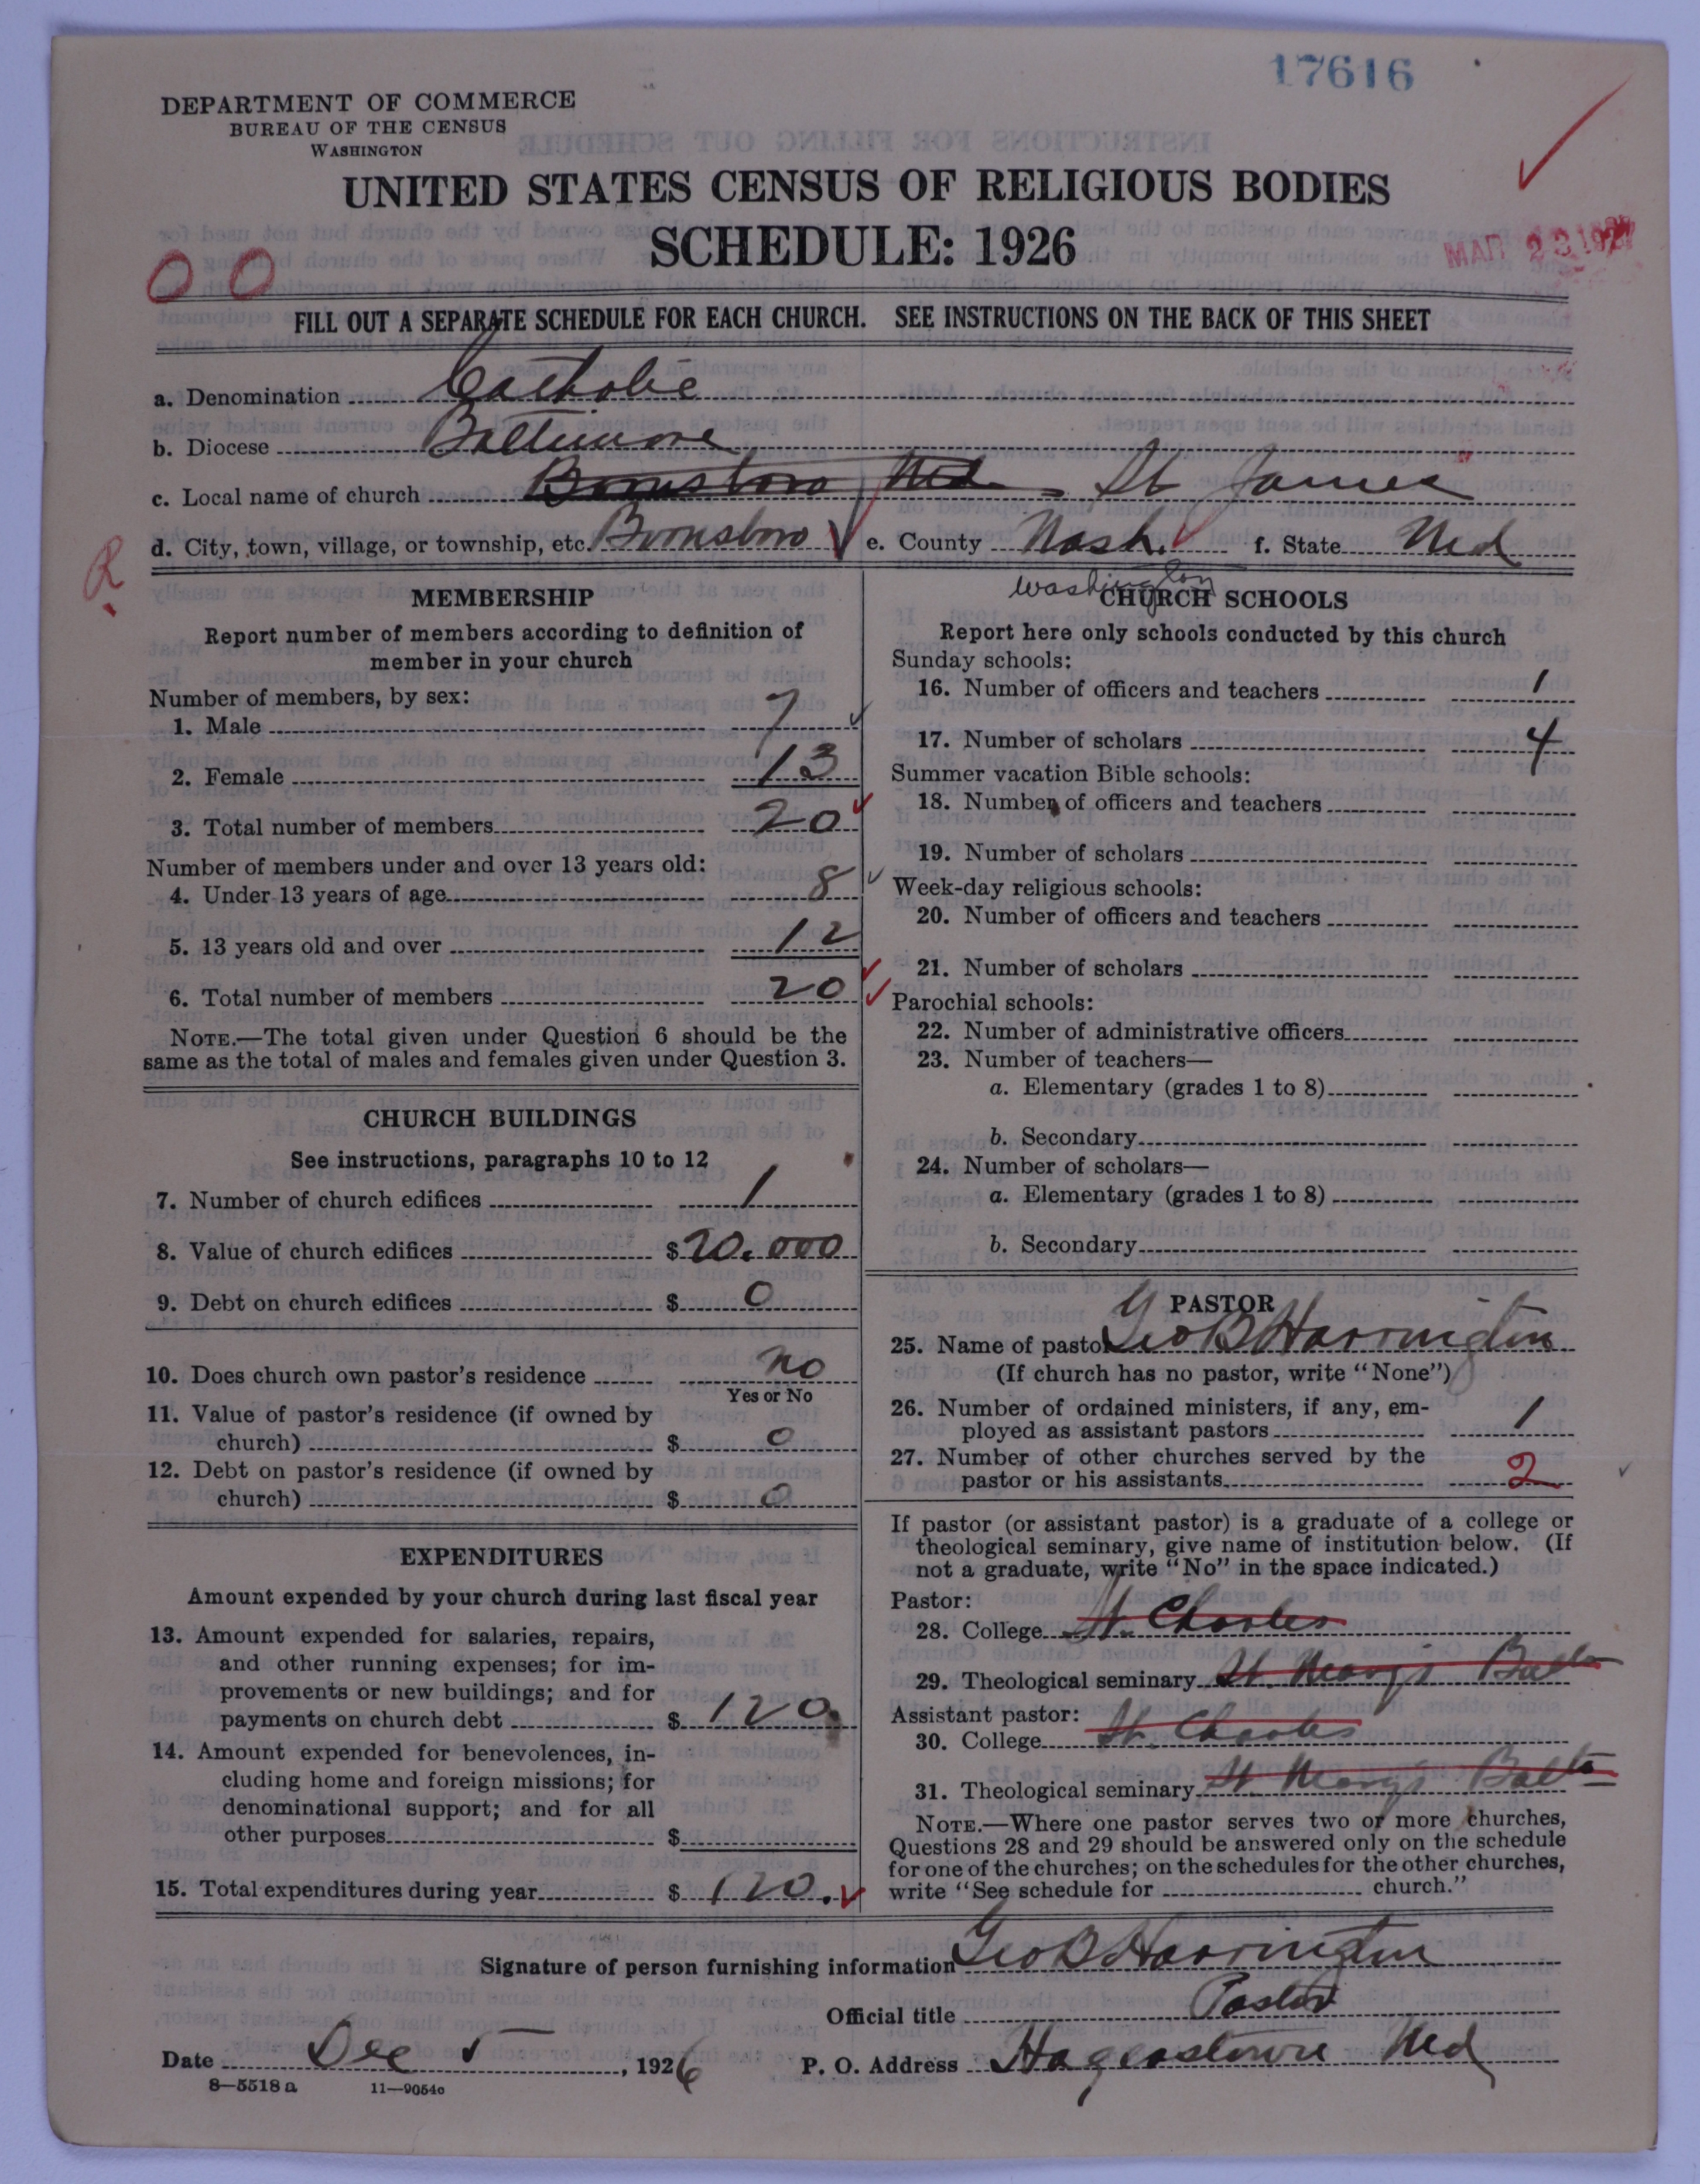 17616
DEPARTMENT OF COMMERCE
BUREAU OF THE CENSUS
WASHINGTON
UNITED STATES CENSUS OF RELIGIOUS BODIES
SCHEDULE: 1926
MAR 23 1927
00
FILL OUT A SEPARATE SCHEDULE FOR EACH CHURCH. SEE INSTRUCTIONS ON THE BACK OF THIS SHEET
a. Denomination Catholic
b. Diocese Baltimore
c. Local name of church Boonsboro Md. - St James
d. City, town, village, or township, etc. Boonsboro e. County Wash. f. State Md
R
Washington
MEMBERSHIP
Report number of members according to definition of
member in your church
Number of members, by sex:
1. Male 7
2. Female 13
3. Total number of members 20
Number of members under and over 13 years old:
4. Under 13 years of age 8
5. 13 years old and over 12
6. Total number of members 20
NOTE.—The total given under Question 6 should be the
same as the total of males and females given under Question 3.
CHURCH BUILDINGS
See instructions, paragraphs 10 to 12
7. Number of church edifices 1
8. Value of church edifices $20.000
9. Debt on church edifices $0
10. Does church own pastor's residence no
Yes or No
11. Value of pastor's residence (if owned by
church) $0
12. Debt on pastor's residence (if owned by
church) $0
EXPENDITURES
Amount expended by your church during last fiscal year
13. Amount expended for salaries, repairs,
and other running expenses; for im-
provements or new buildings; and for
payments on church debt $120.
14. Amount expended for benevolences, in-
cluding home and foreign missions; for
denominational support; and for all
other purposes $
15. Total expenditures during year $120.
CHURCH SCHOOLS
Report here only schools conducted by this church
Sunday schools:
16. Number of officers and teachers 1
17. Number of scholars 4
Summer vacation Bible schools:
18. Number of officers and teachers
19. Number of scholars
Week-day religious schools:
20. Number of officers and teachers
21. Number of scholars
Parochial schools:
22. Number of administrative officers
23. Number of teachers—
a. Elementary (grades 1 to 8)
b. Secondary
24. Number of scholars—
a. Elementary (grades 1 to 8)
b. Secondary
PASTOR
25. Name of pastor Geo B Harrington
(If church has no pastor, write "None")
26. Number of ordained ministers, if any, em-
ployed as assistant pastors 1
27. Number of other churches served by the
pastor or his assistants 2
If pastor (or assistant pastor) is a graduate of a college or
theological seminary, give name of institution below. (If
not a graduate, write "No" in the space indicated.)
Pastor:
28. College St. Charles
29. Theological seminary St. Mary's Balto
Assistant pastor:
30. College St. Charles
31. Theological seminary St Mary's Balto
NOTE.—Where one pastor serves two or more churches,
Questions 28 and 29 should be answered only on the schedule
for one of the churches; on the schedules for the other churches,
write "See schedule for church."
Signature of person furnishing information Geo B Harrington
Official title Pastor
Date Dec 5, 1926 P. O. Address Hagerstown Md
8—5518 a 11—9054c